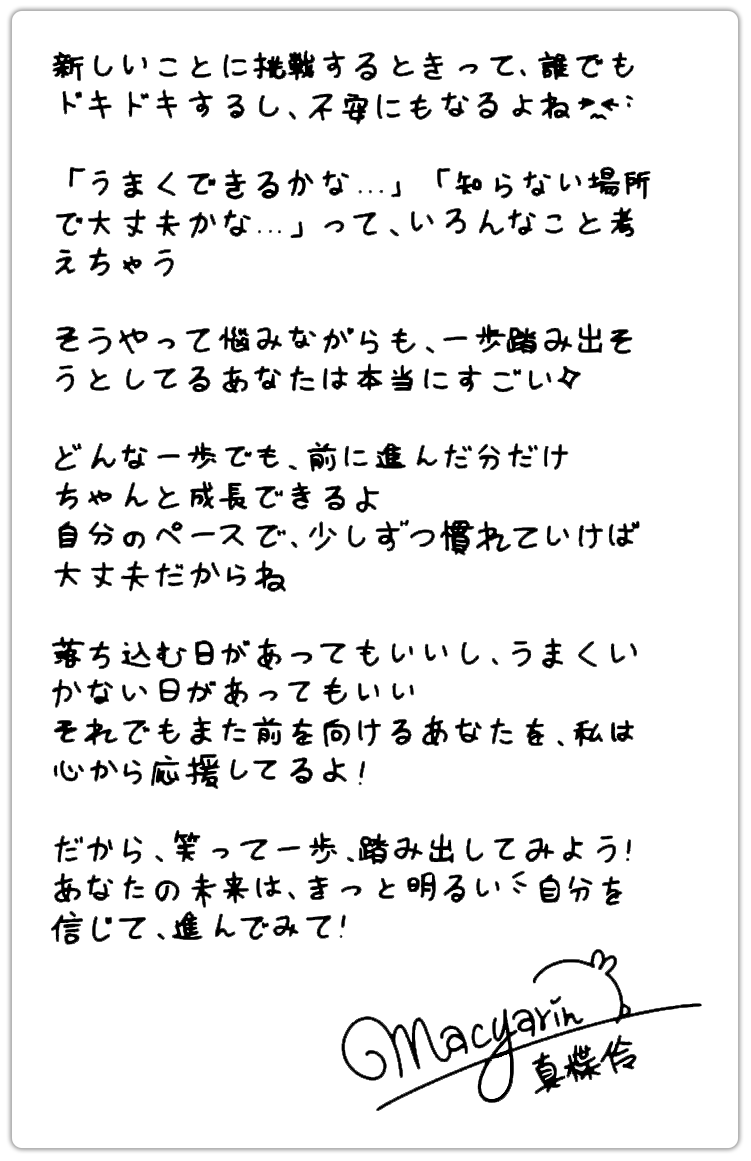 新しいことに挑戦するときって、誰でも
ドキドキするし、不安にもなるよね
「うまくできるかな…」「知らない場所
で大丈夫かな…」って、いろんなこと考
えちゃう
そうやって悩みながらも、一歩踏み出そ
うとしてるあなたは本当にすごい✧
どんな一歩でも、前に進んだ分だけ
ちゃんと成長できるよ
自分のペースで、少しずつ慣れていけば
大丈夫だからね
落ち込む日があってもいいし、うまくい
かない日があってもいい
それでもまた前を向けるあなたを、私は
心から応援してるよ!
だから、笑って一歩、踏み出してみよう!
あなたの未来は、きっと明るい 自分を
信じて、進んでみて!
Macyarin
真惵伶